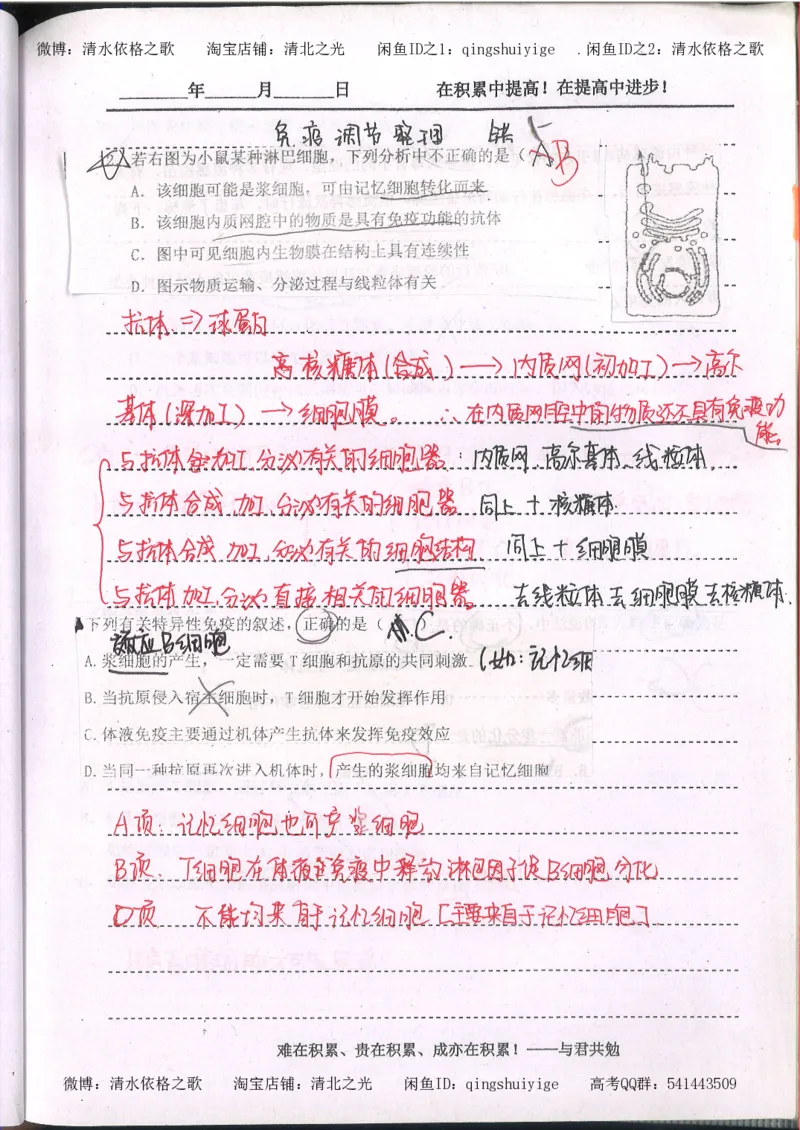 微博：清水依格之歌 淘宝店铺：清北之光 闲鱼ID之1：qingshuiyige .闲鱼ID之2：清水依格之歌
______年______月______日 在积累中提高！在提高中进步！
免疫调节整理 错
若右图为小鼠某种淋巴细胞，下列分析中不正确的是（ A B
A．该细胞可能是浆细胞，可由记忆细胞转化而来
B．该细胞内质网腔中的物质是具有免疫功能的抗体
C．图中可见细胞内生物膜在结构上具有连续性
D．图示物质运输、分泌过程与线粒体有关
抗体 => 球蛋白
高核糖体(合成) → 内质网(初加工) → 高尔
基体(深加工) → 细胞膜。 ∴在内质网腔中的物质还不具有免疫功
能。
与抗体加工,分泌有关的细胞器：内质网、高尔基体、线粒体.
与抗体合成,加工,分泌有关的细胞器 同上 + 核糖体
与抗体合成,加工,分泌有关的细胞结构 同上 + 细胞膜
与抗体加工,分泌直接相关的细胞器 去线粒体 去细胞膜 去核糖体.
下列有关特异性免疫的叙述，正确的是（ ） C.
效应B细胞
A.浆细胞的产生，一定需要T细胞和抗原的共同刺激 (如：记忆细
B.当抗原侵入宿主细胞时，T细胞才开始发挥作用
C.体液免疫主要通过机体产生抗体来发挥免疫效应
D.当同一种抗原再次进入机体时，产生的浆细胞均来自记忆细胞
A项：记忆细胞也可产浆细胞
B项：T细胞在体液免疫中释放淋巴因子促B细胞分化
D项 不能均来自于记忆细胞[主要来自于记忆细胞].
难在积累、贵在积累、成亦在积累！——与君共勉
微博：清水依格之歌 淘宝店铺：清北之光 闲鱼ID：qingshuiyige 高考QQ群：541443509